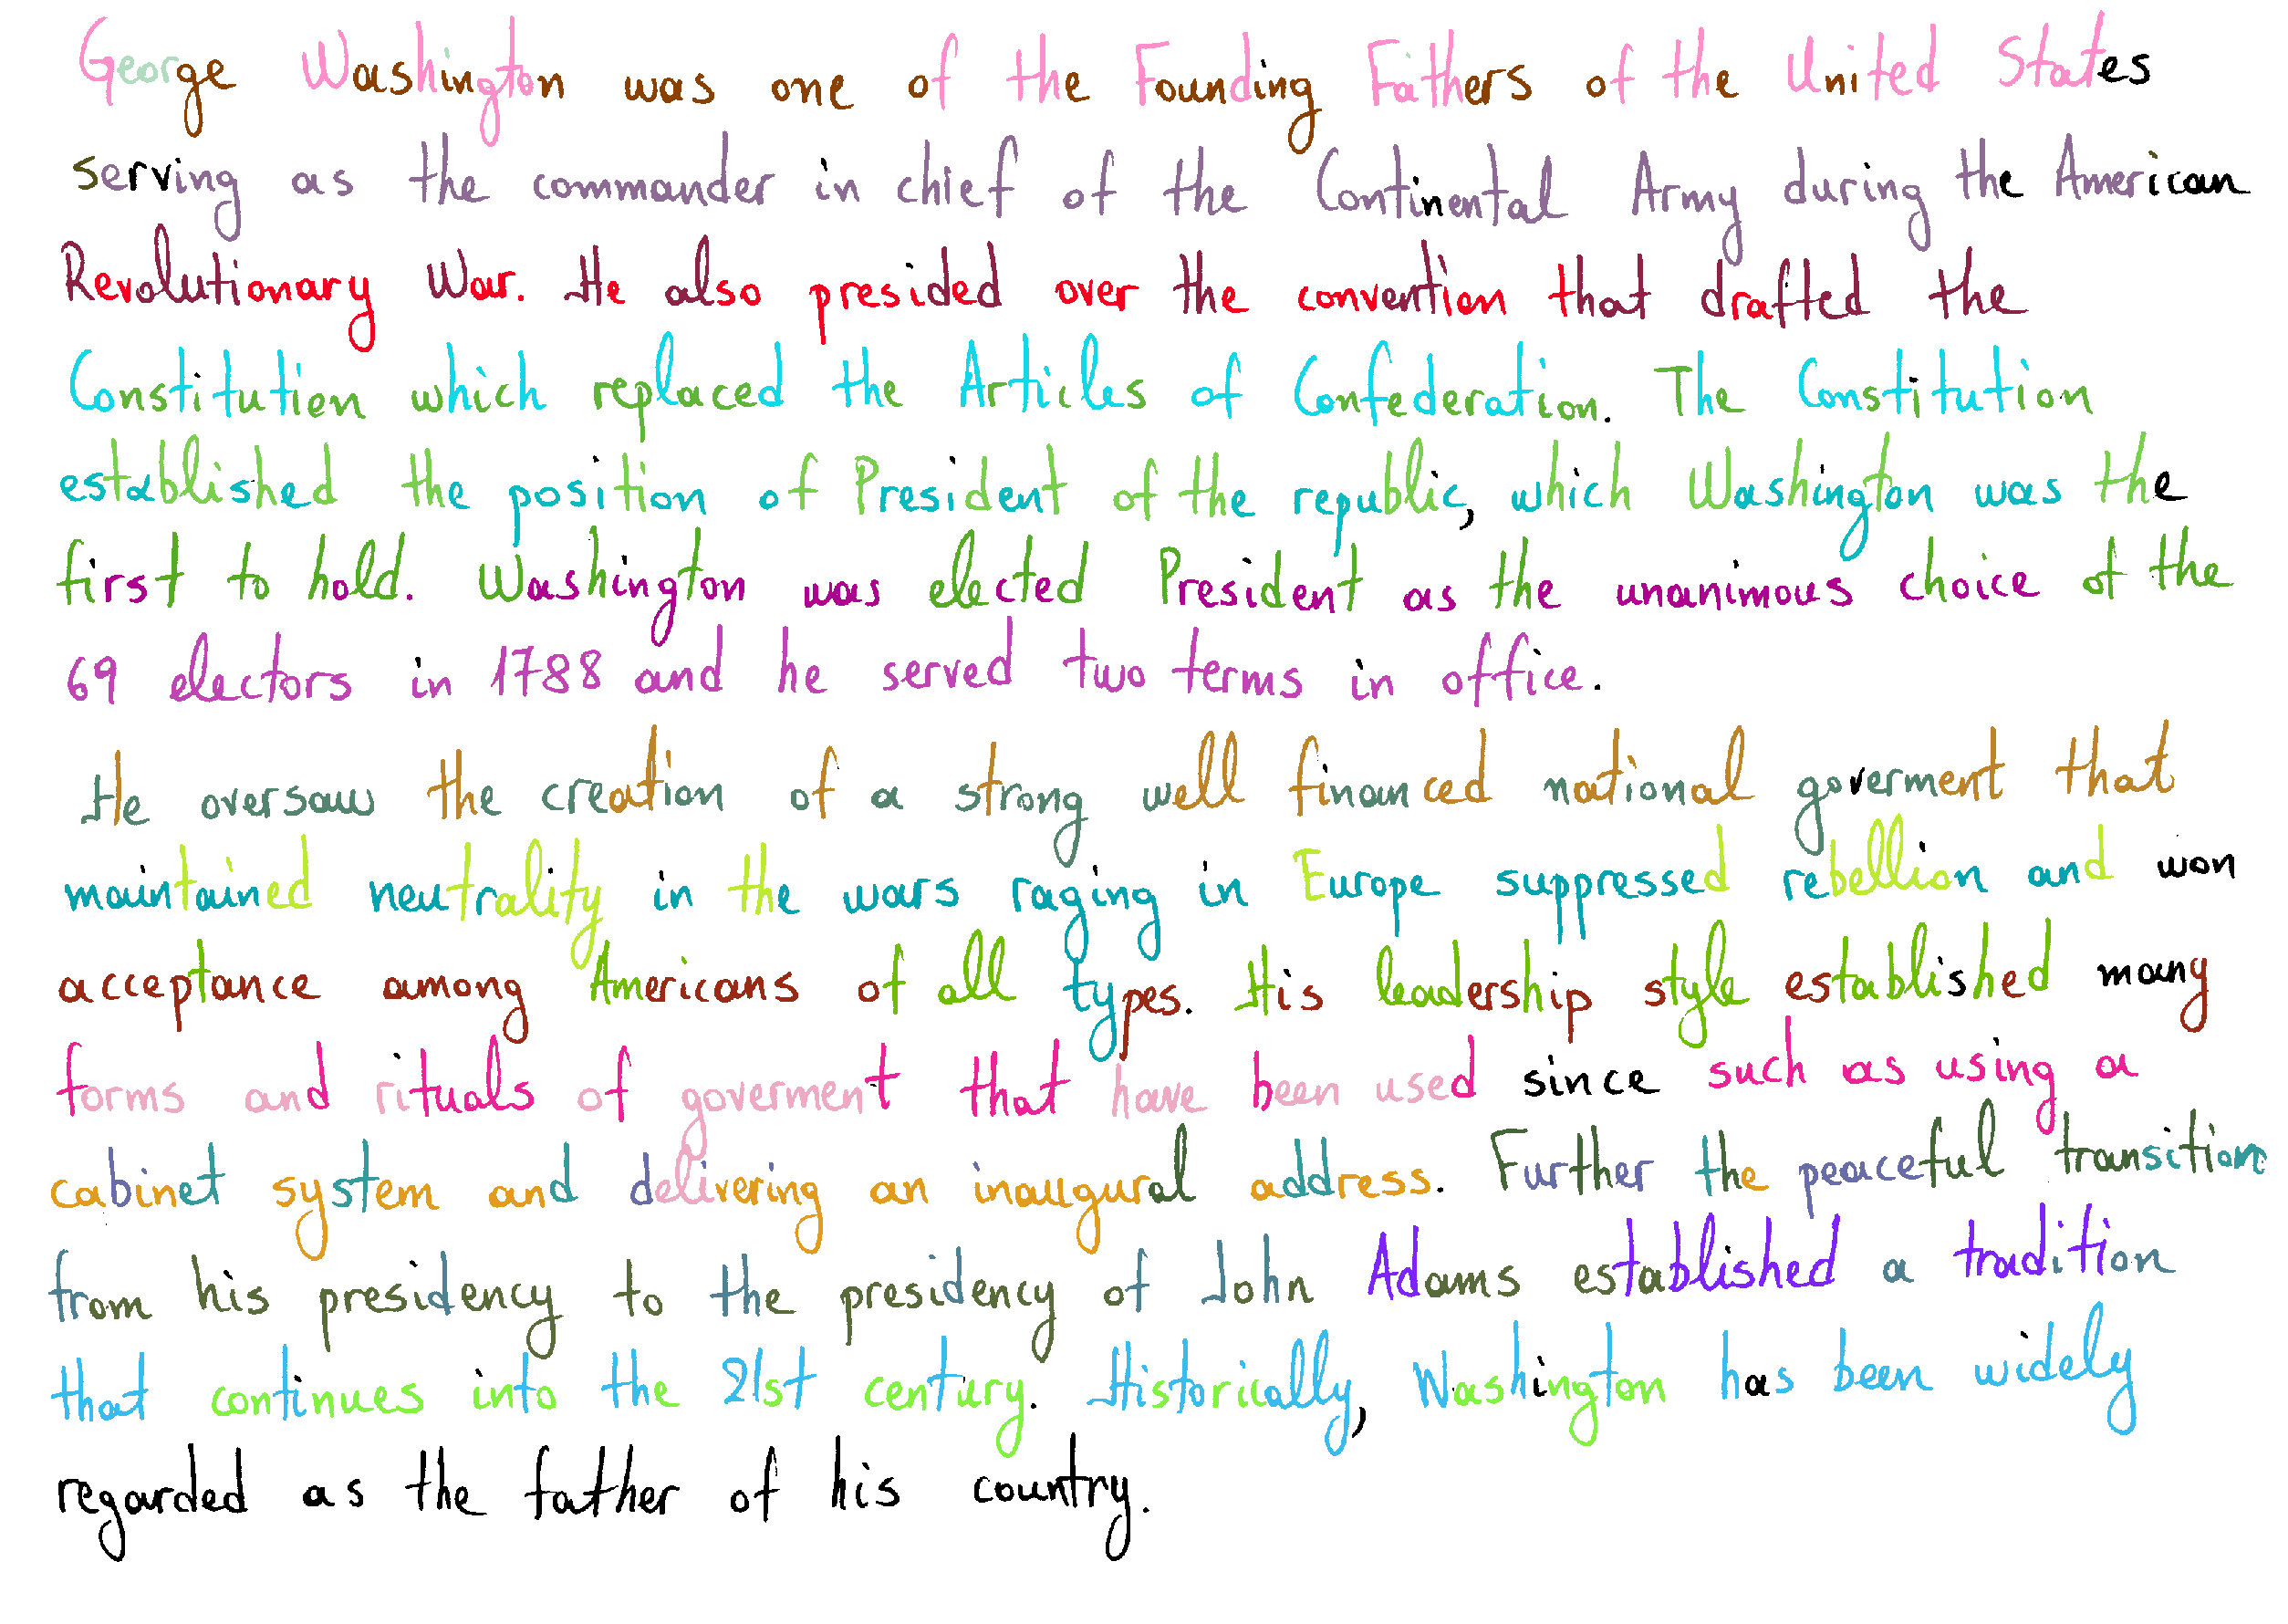 George Washington was one of the Founding Fathers of the United States
serving as the commander in chief of the Continental Army during the American
Revolutionary War. He also presided over the convention that drafted the
Constitution which replaced the Articles of Confederation. The Constitution
established the position of President of the republic, which Washington was the
first to hold. Washington was elected President as the unanimous choice of the
69 electors in 1788 and he served two terms in office.
He oversaw the creation of a strong well financed national goverment that
maintained neutrality in the wars raging in Europe suppressed rebellion and won
acceptance among Americans of all types. His leadership style established many
forms and rituals of goverment that have been used since such as using a
cabinet system and delivering an inaugural address. Further the peaceful transition
from his presidency to the presidency of John Adams established a tradition
that continues into the 21st century. Historically, Washington has been widely
regarded as the father of his country.